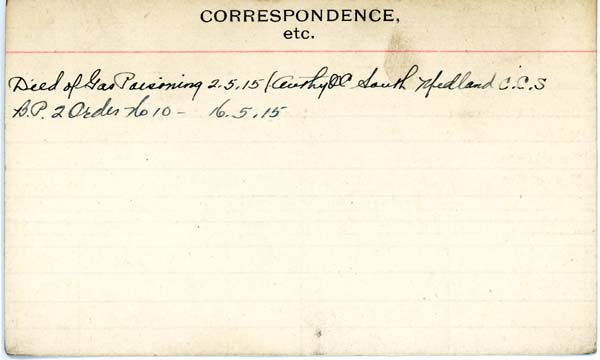 CORRESPONDENCE,
etc.
Died of Gas Poisoning 2.5.15 (Authy OC South Midland C.C.S
B.P. 2 Order No 10 - 16.5.15